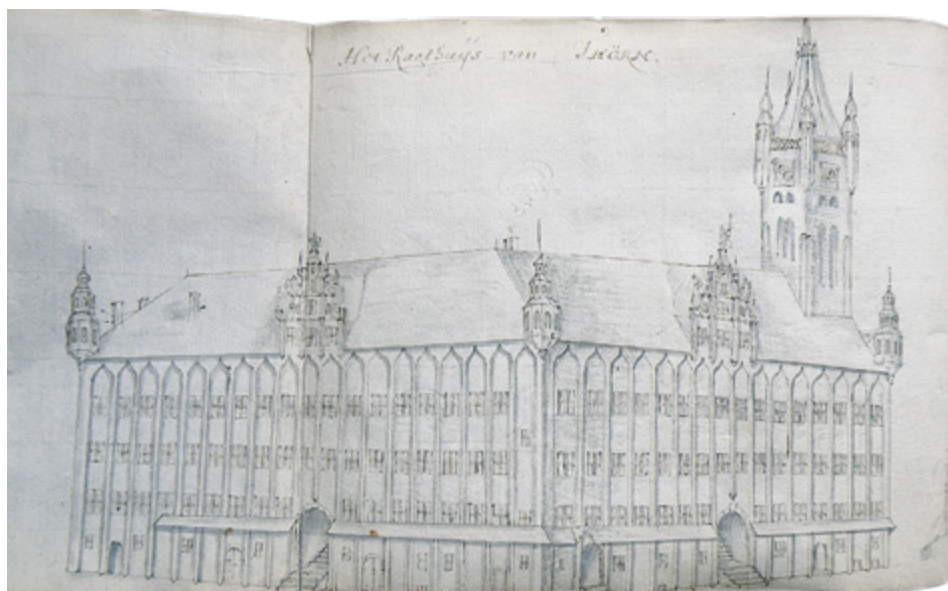 Het Raethuÿs van Thörn.